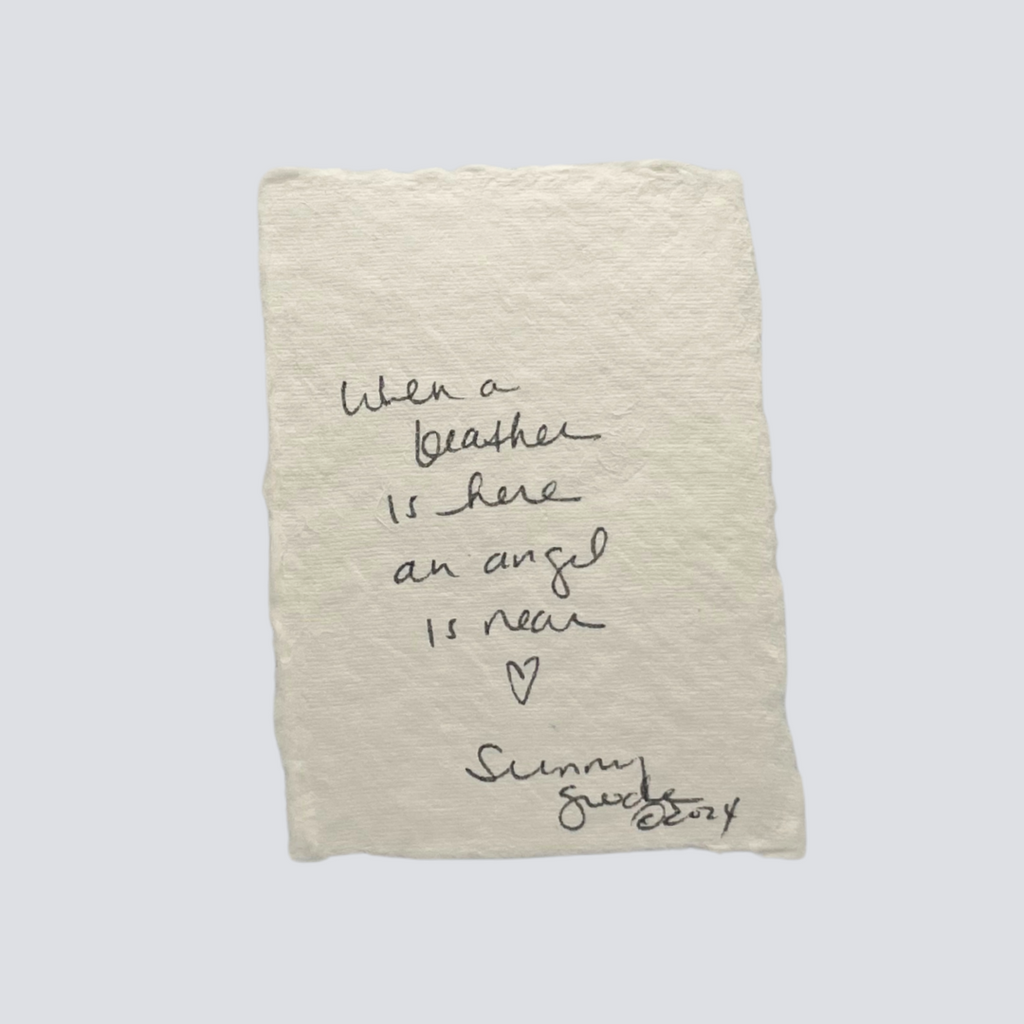 When a
feather
is here
an angel
is near
♡
Sunny
goode
©2024